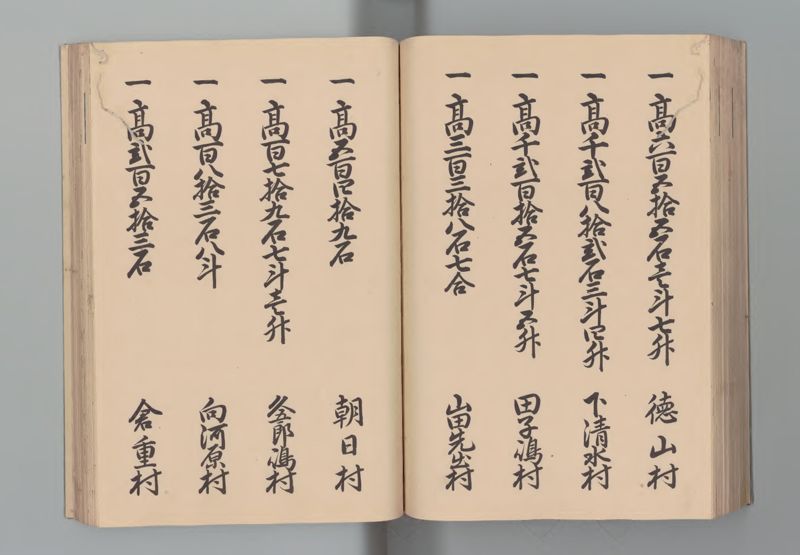 一 高六百五拾五石壱斗七升 徳山村
一 高千弐百八拾弐石三斗四升 下清水村
一 高千弐百拾五石七斗五升 田子嶋村
一 高三百三拾八石七合 山田先出村
一 高五百四拾九石 朝日村
一 高百七拾九石七斗壱升 久五郎嶋村
一 高百八拾三石八斗 向河原村
一 高弐百五拾三石 倉重村